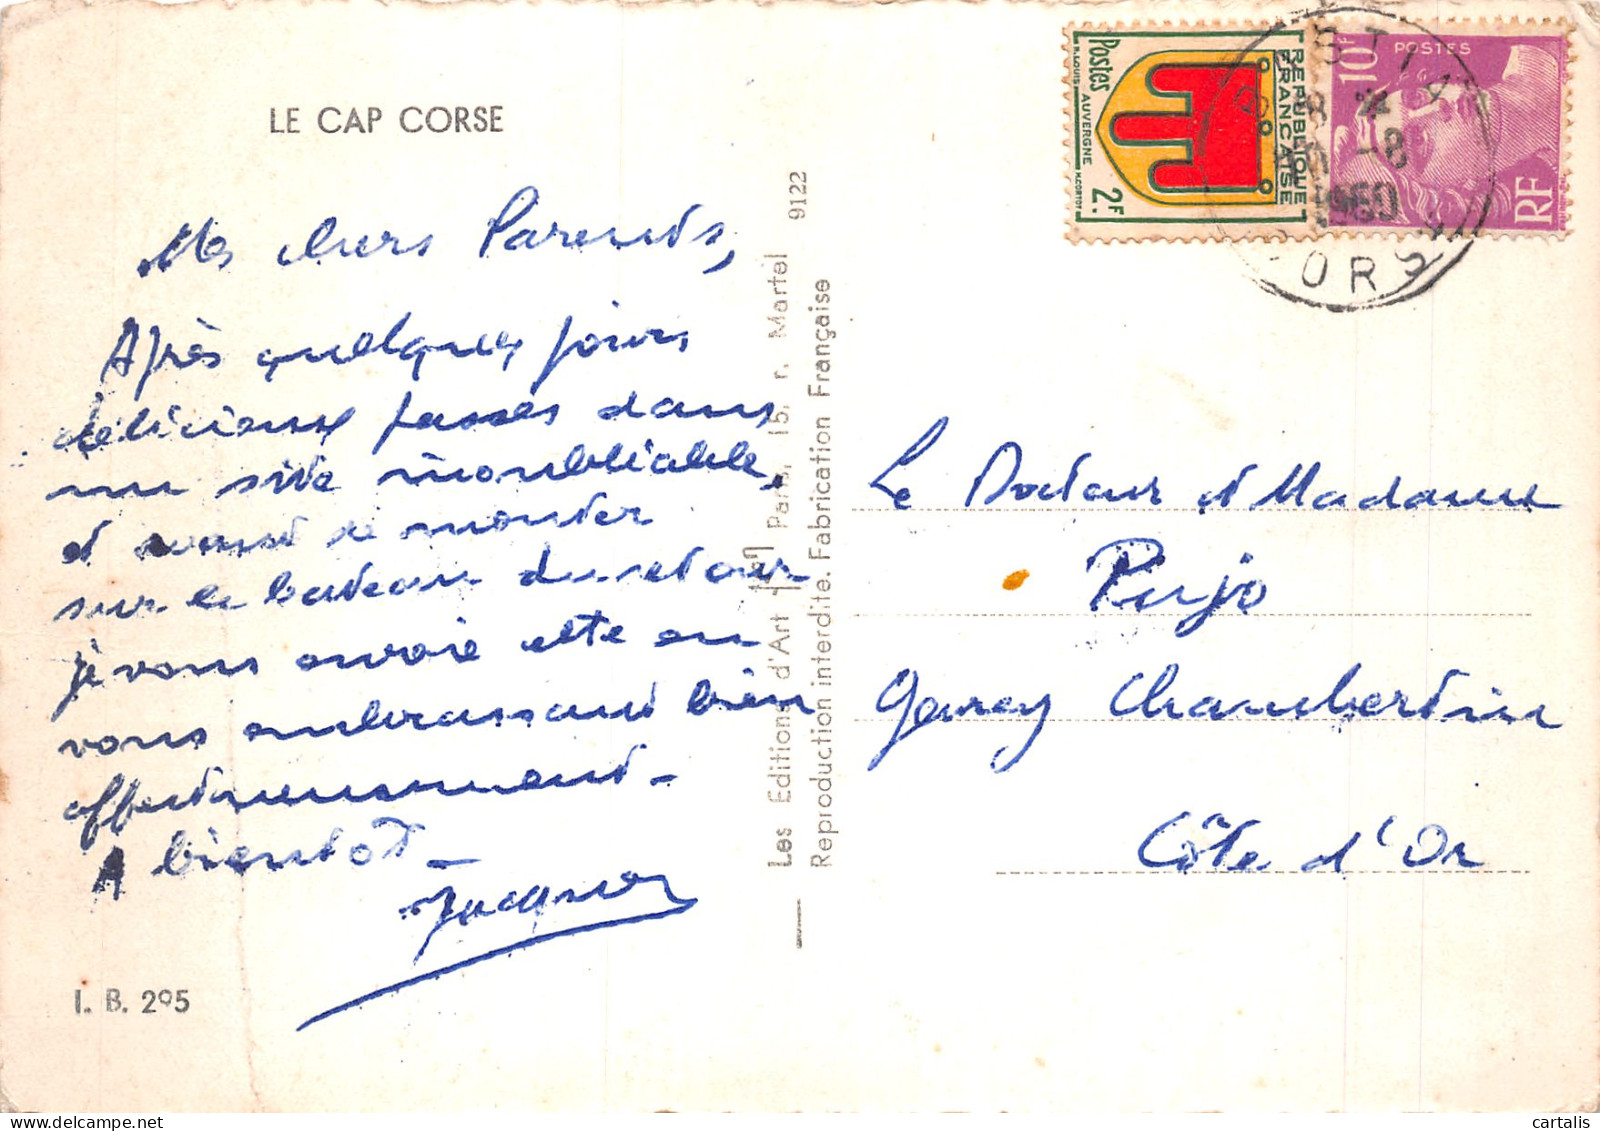 LE CAP CORSE
Mes chers Parents,
Après quelques jours
délicieux passés dans
un site inoubliable,
et avant de monter
sur le bateau du retour
je vous envoie cette en
vous embrassant bien
affectueusement -
A bientôt -
Jacques
I. B. 295
Les Editions d'Art Paris, 15, r. Martel 9122
Reproduction interdite. Fabrication Française
Postes
REPUBLIQUE
FRANÇAISE
R. LOUIS AUVERGNE H. CORTOT
2F
10F
POSTES
RF
BASTIA
18 H
-8
CORSE
Le Docteur et Madame
Pujo
Gevrey Chambertin
Côte d'Or
cartalis
www.delcampe.net